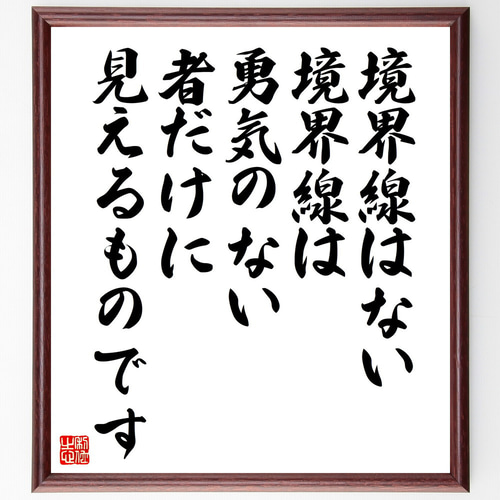 境界線はない
境界線は
勇気のない
者だけに
見えるものです